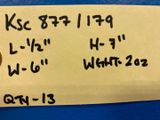 KSC 877/179
L-½" H-7"
W-6" WGHT-2oz
QTY-13